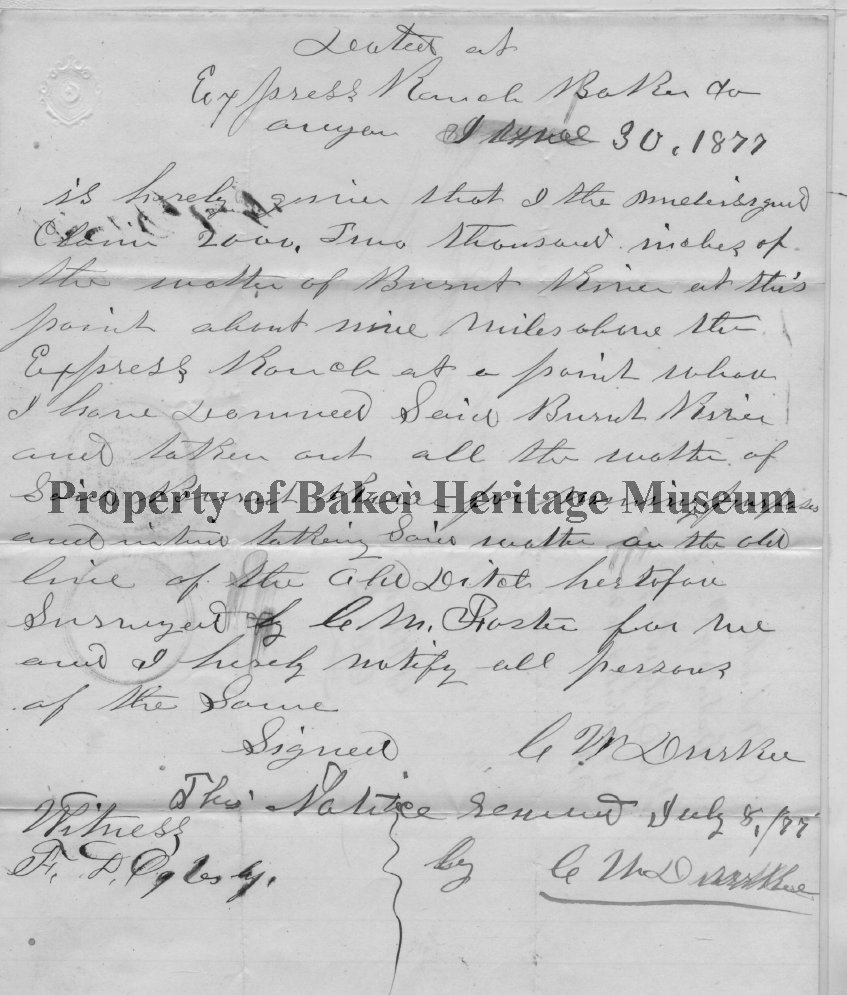 Dated at
Express Ranch Baker Co
Oregon June 30, 1877
is hereby given that I the undersigned
Claim 2000, Two thousand inches of
the watter of Burnt River at this
point about nine miles above the
Express Ranch at a point whare
I have Dammed Said Burnt River
and taken out all the watter of
Said Burnt River for mining purposes
Property of Baker Heritage Museum
and intend takeing Said watter on the old
line of the Old Ditch hertofore
Surveyed by C M. Foster for me
and I hereby notify all persons
of the Same
Signed C W Durkee
This Notice renewed July 8, /77
Witness
F. D. Oglesby. by C W Durkee